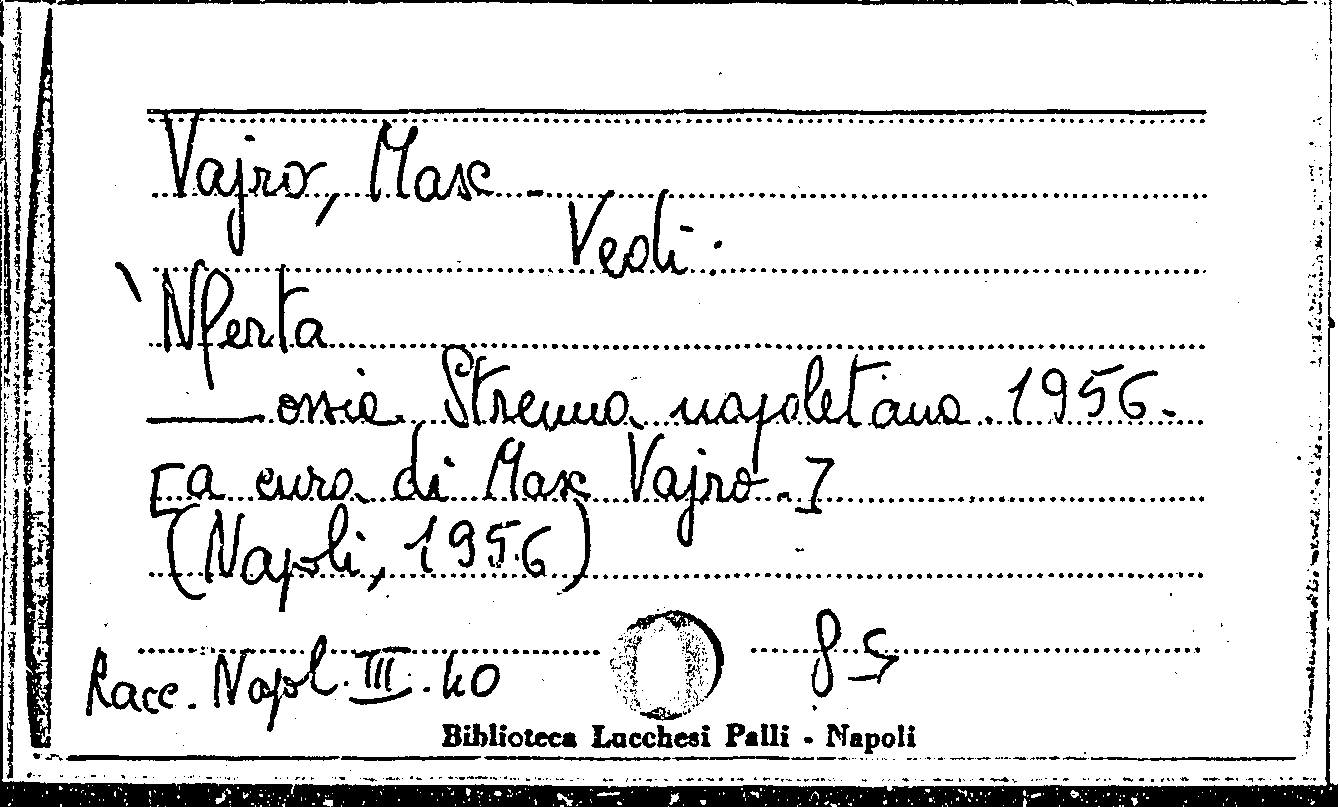 Vajro, Max -
Vedi:
'Nferta
ossia Strenna napoletana 1956.
[a cura di Max Vajro.]
(Napoli, 1956)
Racc. Napl. III. 40
Biblioteca Lucchesi Palli - Napoli